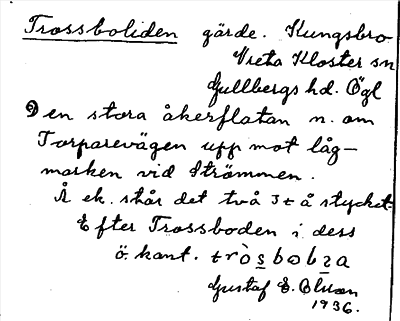 Trossboliden gärde. Kungsbro
Vreta Kloster sn
Gullbergs hd. Ögl
den stora åkerflatan n. om
Torparevägen upp mot låg-
marken vid Strömmen.
Å ek. står det två st å stycket.
Efter Trossboden i dess
ö. kant.
Gustaf E.
1936.